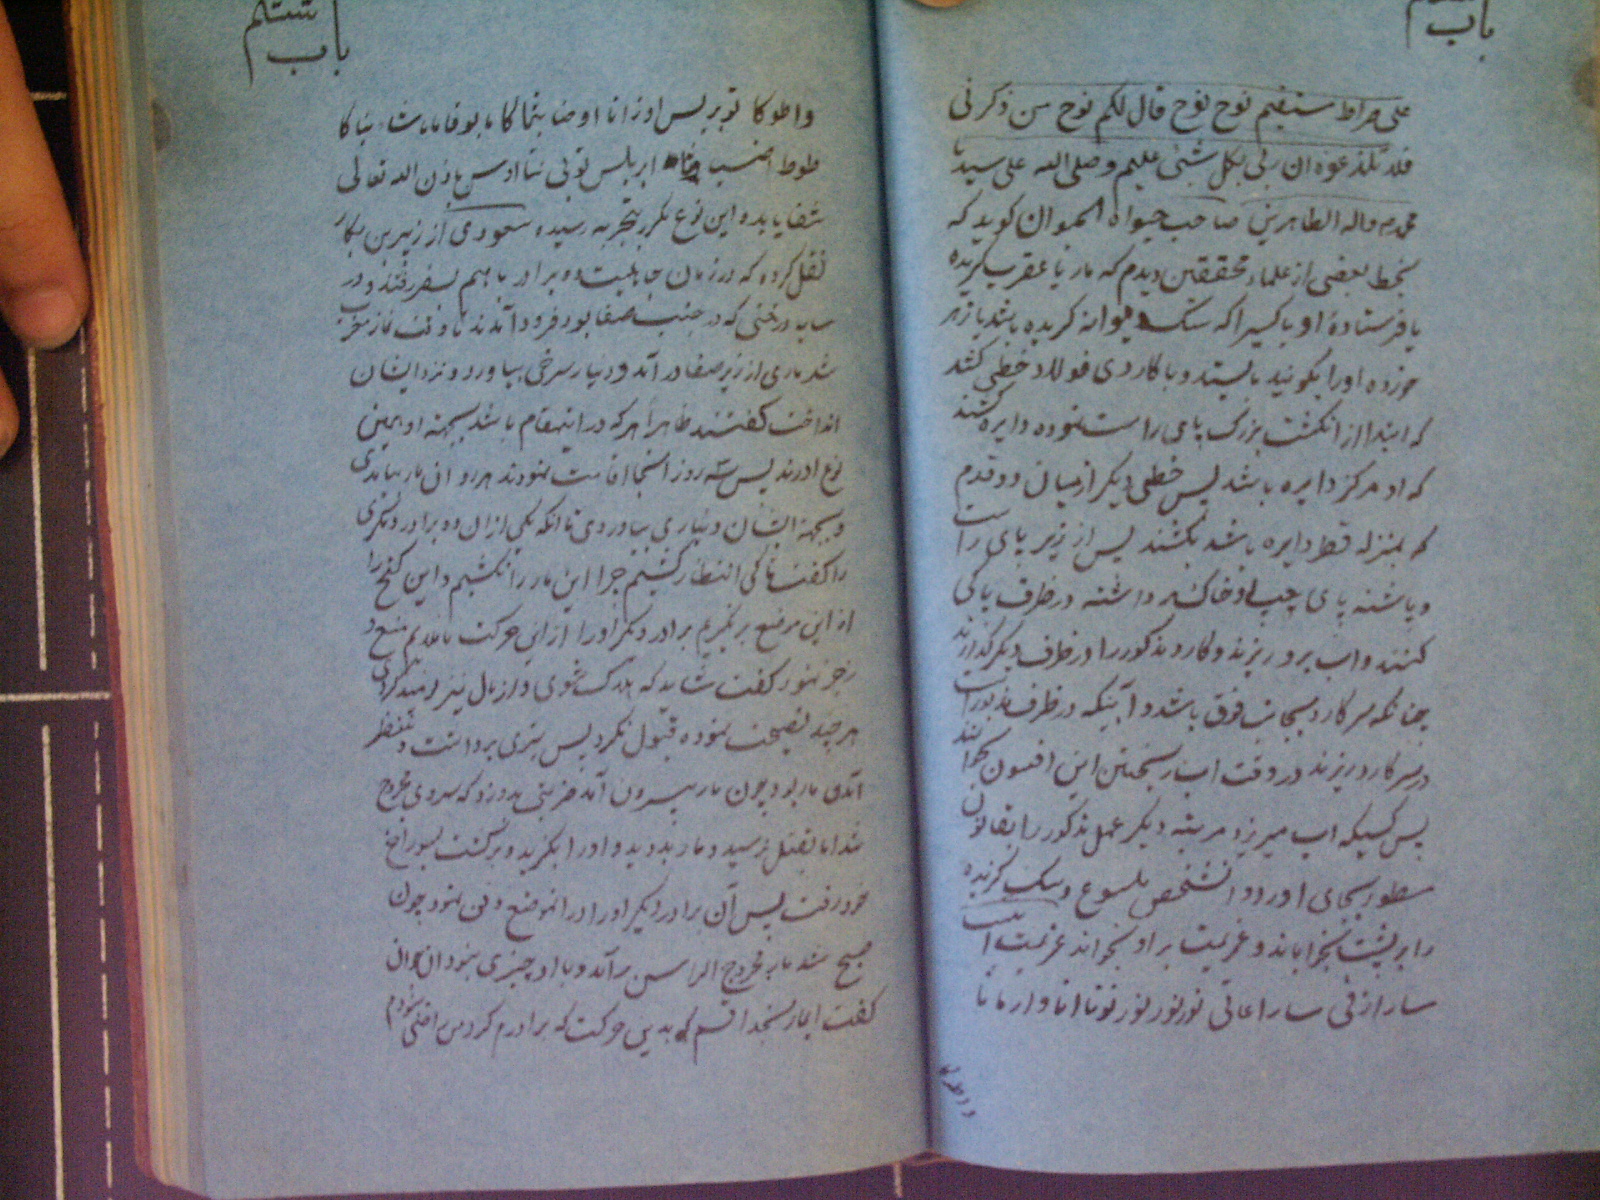 باب
علی صراط مستقیم نوح نوح قال لکم نوح من ذکرنی
فلا تلدغوه ان ربی بکل شیٔ علیم و صلی الله علی سیدنا
محمد و اله الطاهرین صاحب حیواه الحیوان کوید که
بخط بعضی از علماء محققین دیدم که مار یا عقرب کزیده
یا فرستادهٔ او یا کسیرا که سک دیوانه کزیده باشد یا زهر
خورده اورا بکوئید بایستد و با کاردی فولاد خطی کشد
که ابتدا از انکشت بزرک پای راست نموده دایره کشند
که او مرکز دایره باشد پس خطی دیکر از میان دو قدم
که بمنزله قطر دایره باشد بکشند پس از زیر پای راست
و پاشنه پای چپ او خاک برداشته در ظرف پاکی
کنند و اب برو ریزند و کارد مذکور را در ظرف دیکر کذارند
چنانکه سر کارد بجانب فوق باشد و آبیکه در ظرف مزبور است
در سر کارد ریزند در وقت اب ریختن این افسون بخوانند
پس کسیکه اب میریزد مرتبه دیکر عمل مذکور را بقانون
مسطور بجای اورد و انشخص ملسوع و سک کزیده
را بر پشت بخواباند و عزیمت بر او بخواند عزیمت اینست
سارا زنی سارا عاتی نور نور نور نوتا انا وارمانا
واطوکا
باب ششم
واطوکا توبرلس اوزانا اوضا بثما کا ما بوفا مانشاء تباکا
طوط اصب ابربلس توبی تنا اوس باذن الله تعالی
شفا یابد و این نوع مکرر بتجربه رسیده مسعودی از زبیر بن بکار
نقل کرده که در زمان جاهلیت دو برادر با هم بسفر رفتند و در
سایه درختی که در جنب صفا بود فرود آمدند تا وقت نماز مغرب
شد ماری از زیر صفا در آمد و دینار سرخی بیاورد و نزد ایشان
انداخت کفتند ظاهرا هر که در اینمقام باشد بجهة او بهمین
نوع اورند پس سه روز انجا اقامت نمودند هر روز ان مار بیامدی
و بجهة ایشان دیناری بیاوردی تا انکه یکی از ان دو برادر دیکری
را کفت تا کی انتظار کشیم چرا این مار را نکشیم و این کنج را
از این موضع بر نکیریم برادر دیکر اورا از این حرکت منع و
زجر نمود کفت شاید که هلاک شوی و از مال نیز نومید کردی
هر چند نصیحت نموده قبول نکرد پس تبری برداشت و منتظر
آمدن مار بود چون مار بیرون آمد ضربتی بدو زد که سروی مجروح
شد اما بقتل نرسید و مار بدوید و اورا بکزید و برکشت بسوراخ
خود رفت پس آن برادر دیکر اورا در انموضع دفن نمود چون
صبح شد مار مجروح الراس بر آمد و با او چیزی نبود ان جوان
کفت ای مار بخدا قسم که بدین حرکت که برادرم کرد من راضی نبودم